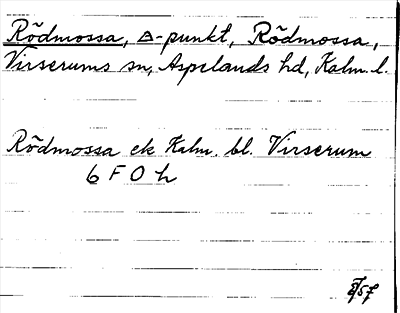 Rödmossa, △-punkt, Rödmossa,
Virserums sn, Aspelands hd, Kalm. l.
Rödmossa ek Kalm. bl. Virserum
6 F O h